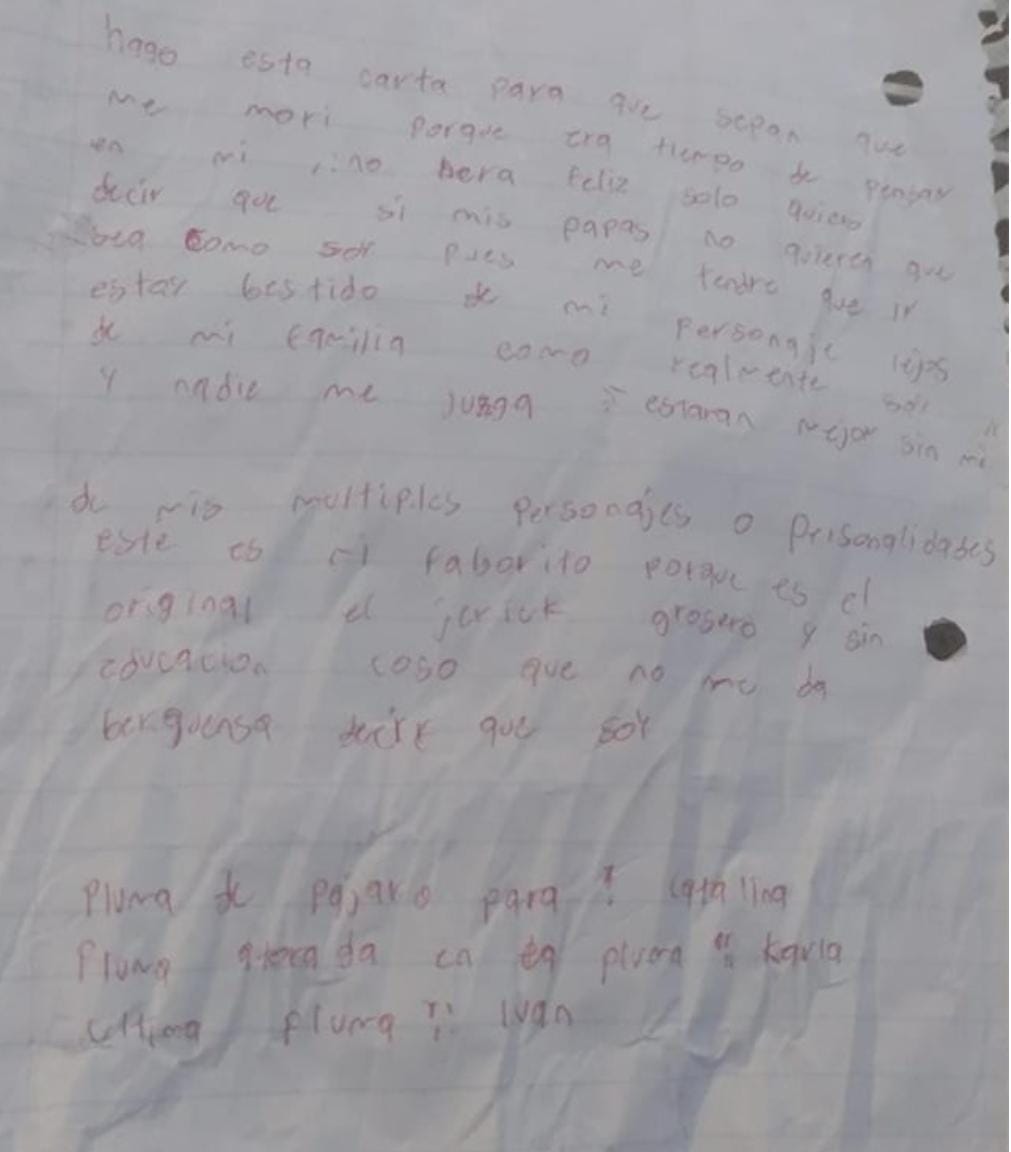 hago esta carta para que sepan que
me mori porque era tiempo de pensar
en mi no bera feliz solo quiero
decir que si mis papas no quieren que
sea como soy pues me tendre que ir
estar bestido de mi personaje lejos
de mi familia como realmente soi
y nadie me juzga estaran mejor sin mi
de mis multiples personajes o personalidades
este es mi faborito porque es el
original el jerick grosero y sin
educacion coso que no me da
berguensa decir que soy
Pluma de pajaro para Catalina
Pluma en la pluma Karla
ultima pluma Ivan